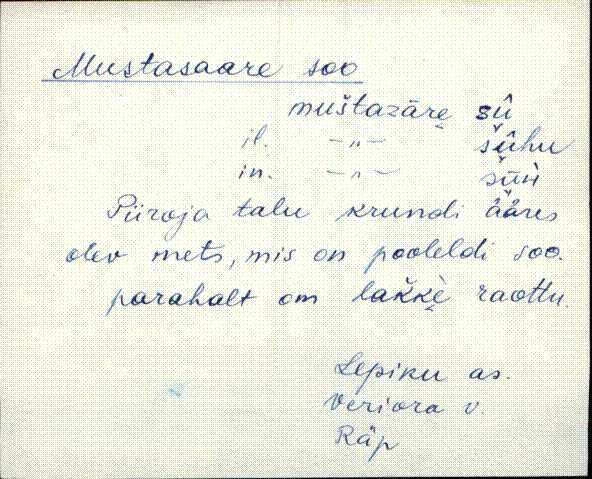 Mustasaare soo
muštazāre̮ sû
il. -„- šûhu
in. -„- šūǹ
Piiroja talu krundi ääres
olev mets, mis on pooleldi soo.
parahalt om lakkè̮ raottu.
Lepiku as.
Veriora v.
Räp